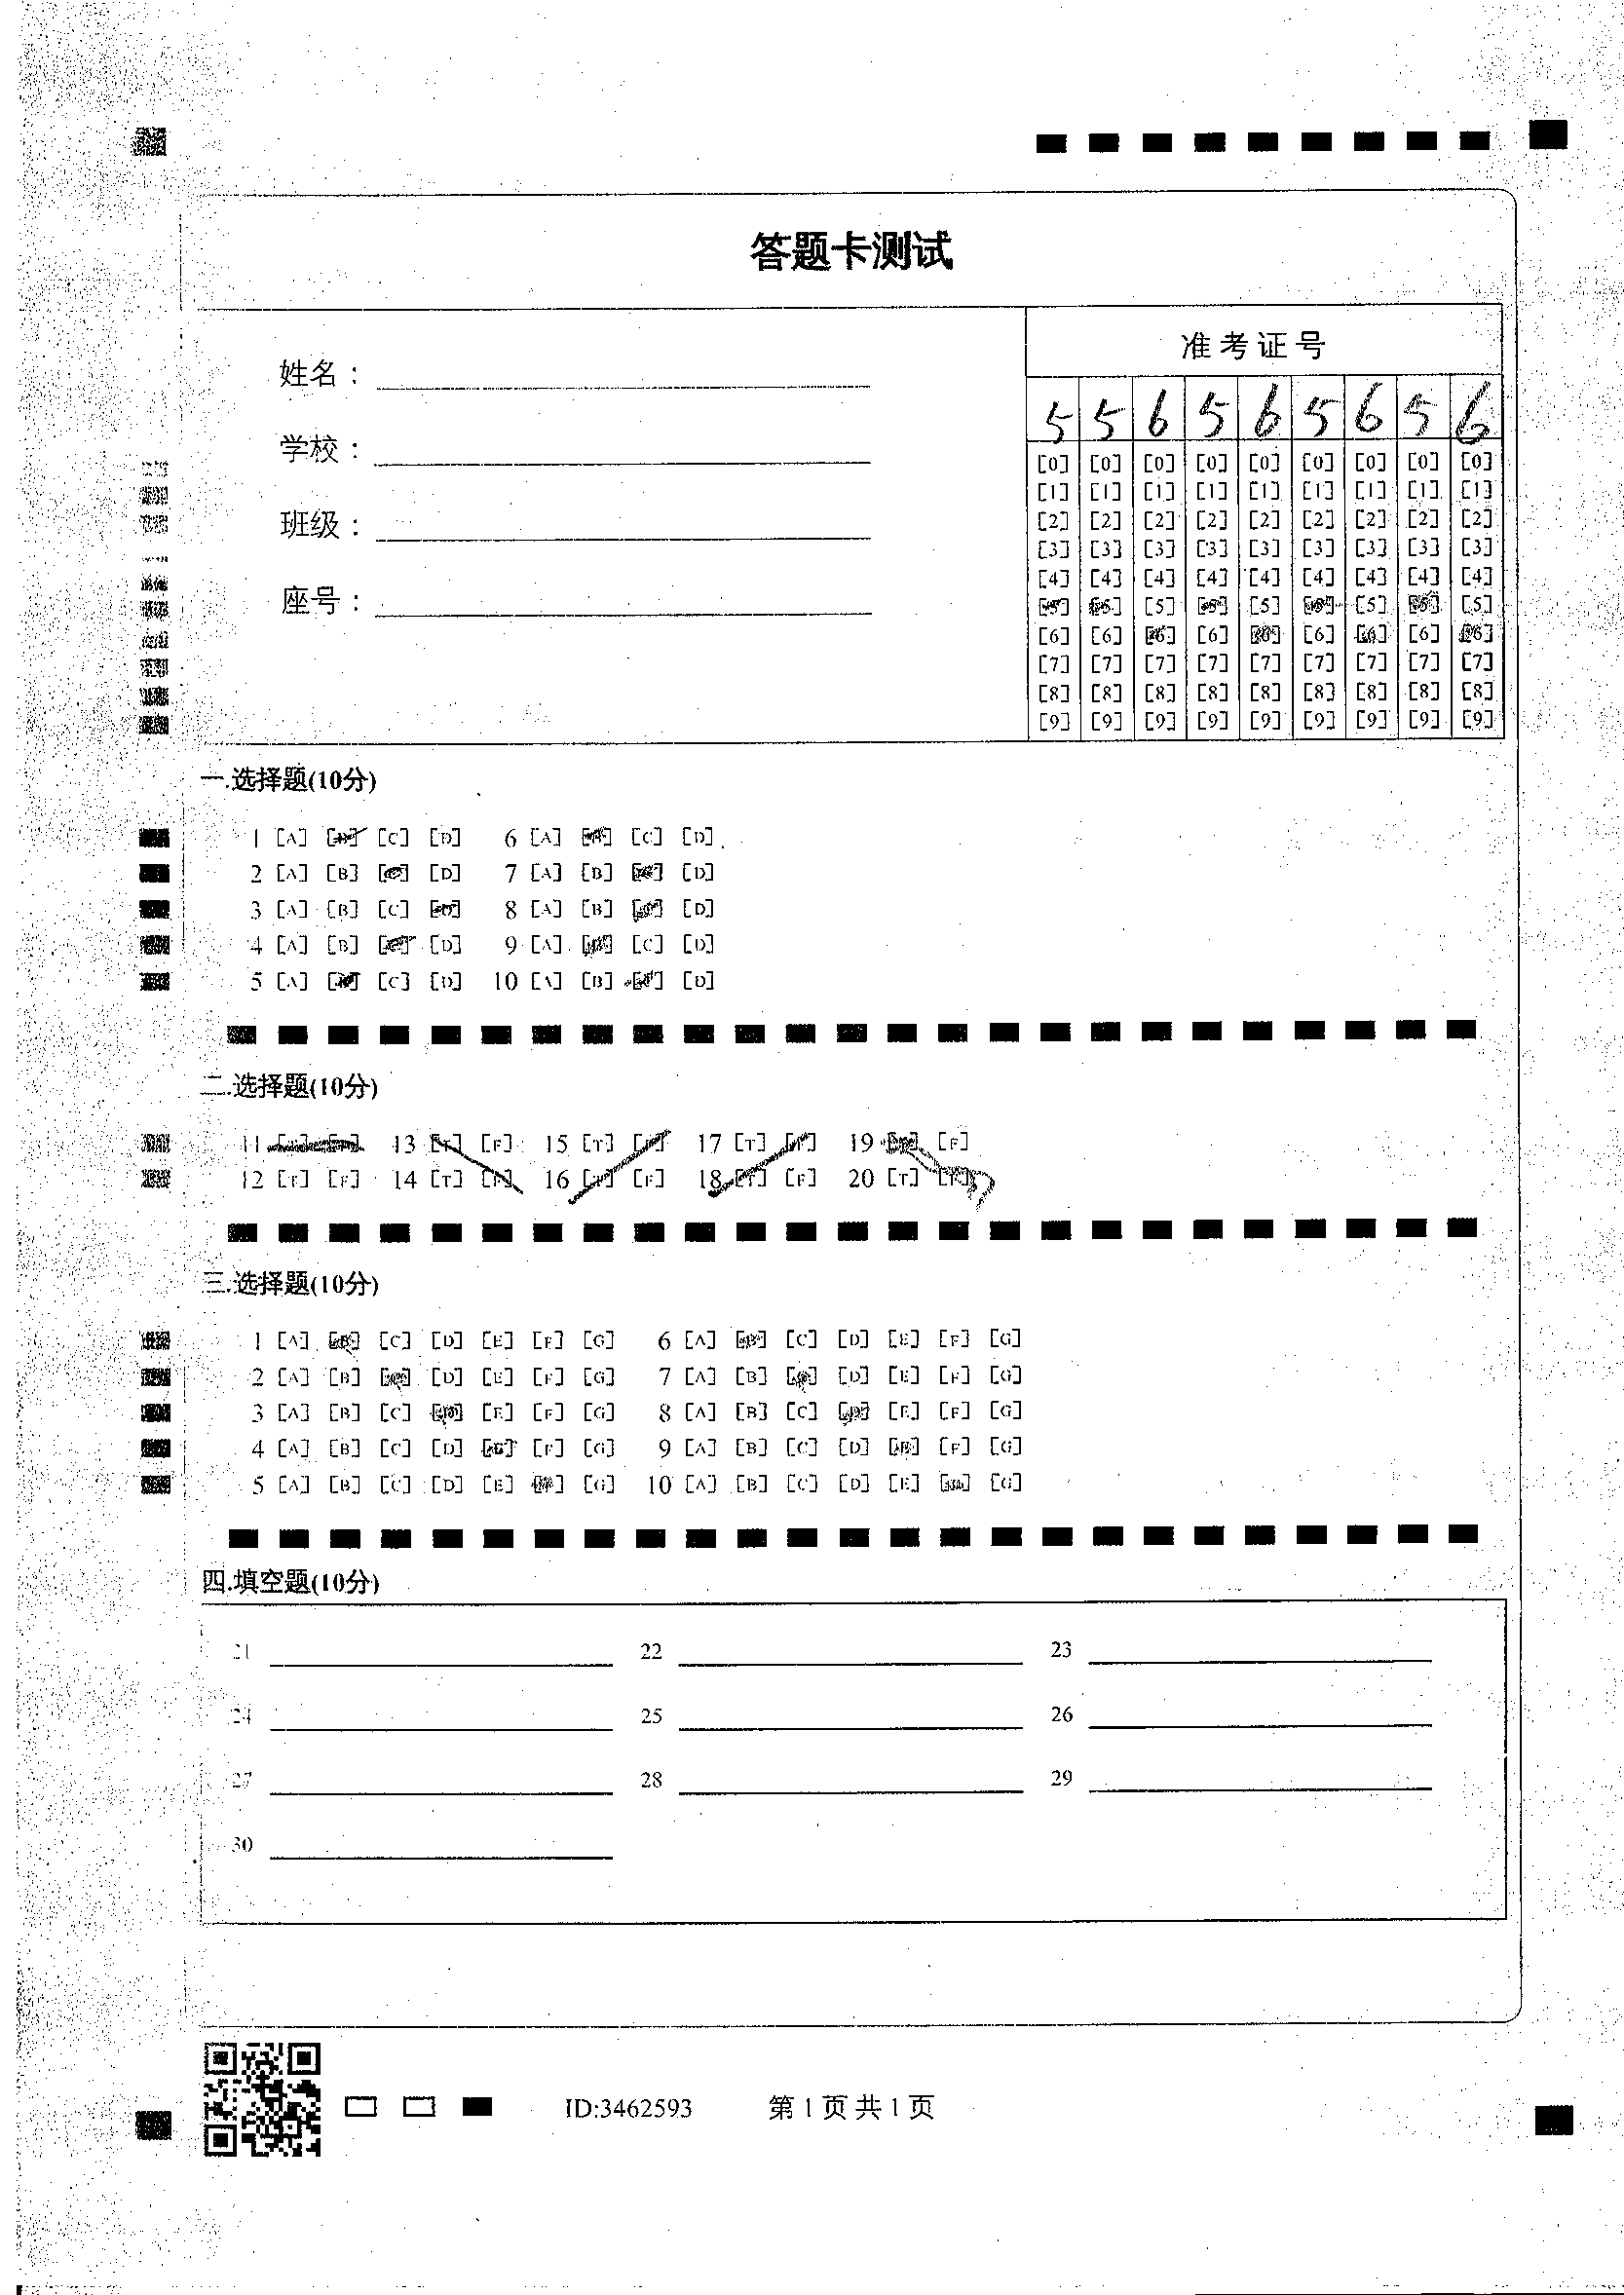 答题卡测试
准考证号
姓名：
学校：
班级：
座号：
5 5 6 5 6 5 6 5 6
[0] [0] [0] [0] [0] [0] [0] [0] [0]
[1] [1] [1] [1] [1] [1] [1] [1] [1]
[2] [2] [2] [2] [2] [2] [2] [2] [2]
[3] [3] [3] [3] [3] [3] [3] [3] [3]
[4] [4] [4] [4] [4] [4] [4] [4] [4]
[5] [5] [5] [5] [5] [5] [5] [5] [5]
[6] [6] [6] [6] [6] [6] [6] [6] [6]
[7] [7] [7] [7] [7] [7] [7] [7] [7]
[8] [8] [8] [8] [8] [8] [8] [8] [8]
[9] [9] [9] [9] [9] [9] [9] [9] [9]
一.选择题(10分)
1 [A] [B] [C] [D] 6 [A] [B] [C] [D]
2 [A] [B] [C] [D] 7 [A] [B] [C] [D]
3 [A] [B] [C] [D] 8 [A] [B] [C] [D]
4 [A] [B] [C] [D] 9 [A] [B] [C] [D]
5 [A] [B] [C] [D] 10 [A] [B] [C] [D]
二.选择题(10分)
11 [T] [F] 13 [T] [F] 15 [T] [F] 17 [T] [F] 19 [T] [F]
12 [T] [F] 14 [T] [F] 16 [T] [F] 18 [T] [F] 20 [T] [F]
三.选择题(10分)
1 [A] [B] [C] [D] [E] [F] [G] 6 [A] [B] [C] [D] [E] [F] [G]
2 [A] [B] [C] [D] [E] [F] [G] 7 [A] [B] [C] [D] [E] [F] [G]
3 [A] [B] [C] [D] [E] [F] [G] 8 [A] [B] [C] [D] [E] [F] [G]
4 [A] [B] [C] [D] [E] [F] [G] 9 [A] [B] [C] [D] [E] [F] [G]
5 [A] [B] [C] [D] [E] [F] [G] 10 [A] [B] [C] [D] [E] [F] [G]
四.填空题(10分)
21 22 23
24 25 26
27 28 29
30
ID:3462593 第1页共1页